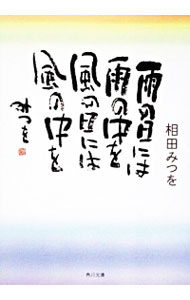 雨の日には
雨の中を
風の日には
風の中を
みつを
相田みつを
角川文庫